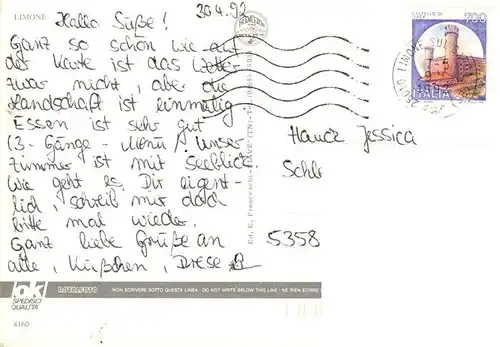 LIMONE
30.4.92
Hallo Süße!
Ganz so schön wie auf
der Karte ist das Wetter
zwar nicht, aber die
Landschaft ist einmalig
Essen ist sehr gut
(3-Gänge-Menü) Unser
Zimmer ist mit Seeblick.
Wie geht es Dir eigent-
lich, schreib mir doch
bitte mal wieder.
Ganz liebe Grüße an
alle, Küßchen,
Hauck Jessica
Schl
5358
700
ITALIA
LIMONE SUL
Ed. E. Franceschi
lok
SPEDISCI
QUALITÀ
ROTALFOTO
NON SCRIVERE SOTTO QUESTA LINEA - DO NOT WRITE BELOW THIS LINE - NE RIEN ÉCRIRE
4160